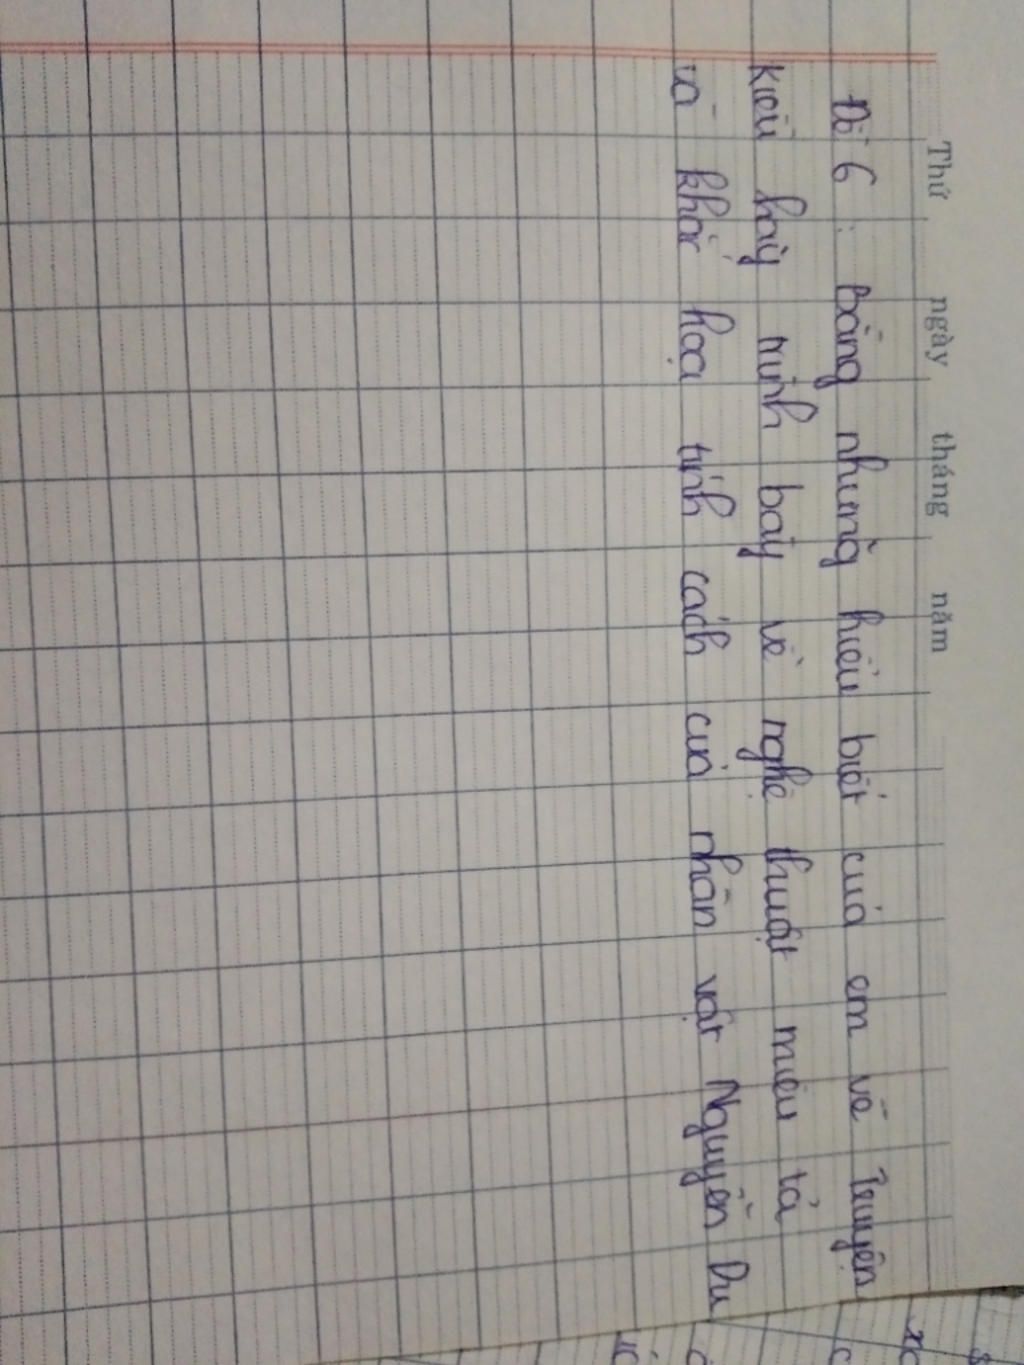 Thứ ngày tháng năm
Đề 6 : Bằng những hiểu biết của em về Truyện
Kiều hãy trình bày về nghệ thuật miêu tả
và khắc họa tính cách của nhân vật Nguyễn Du